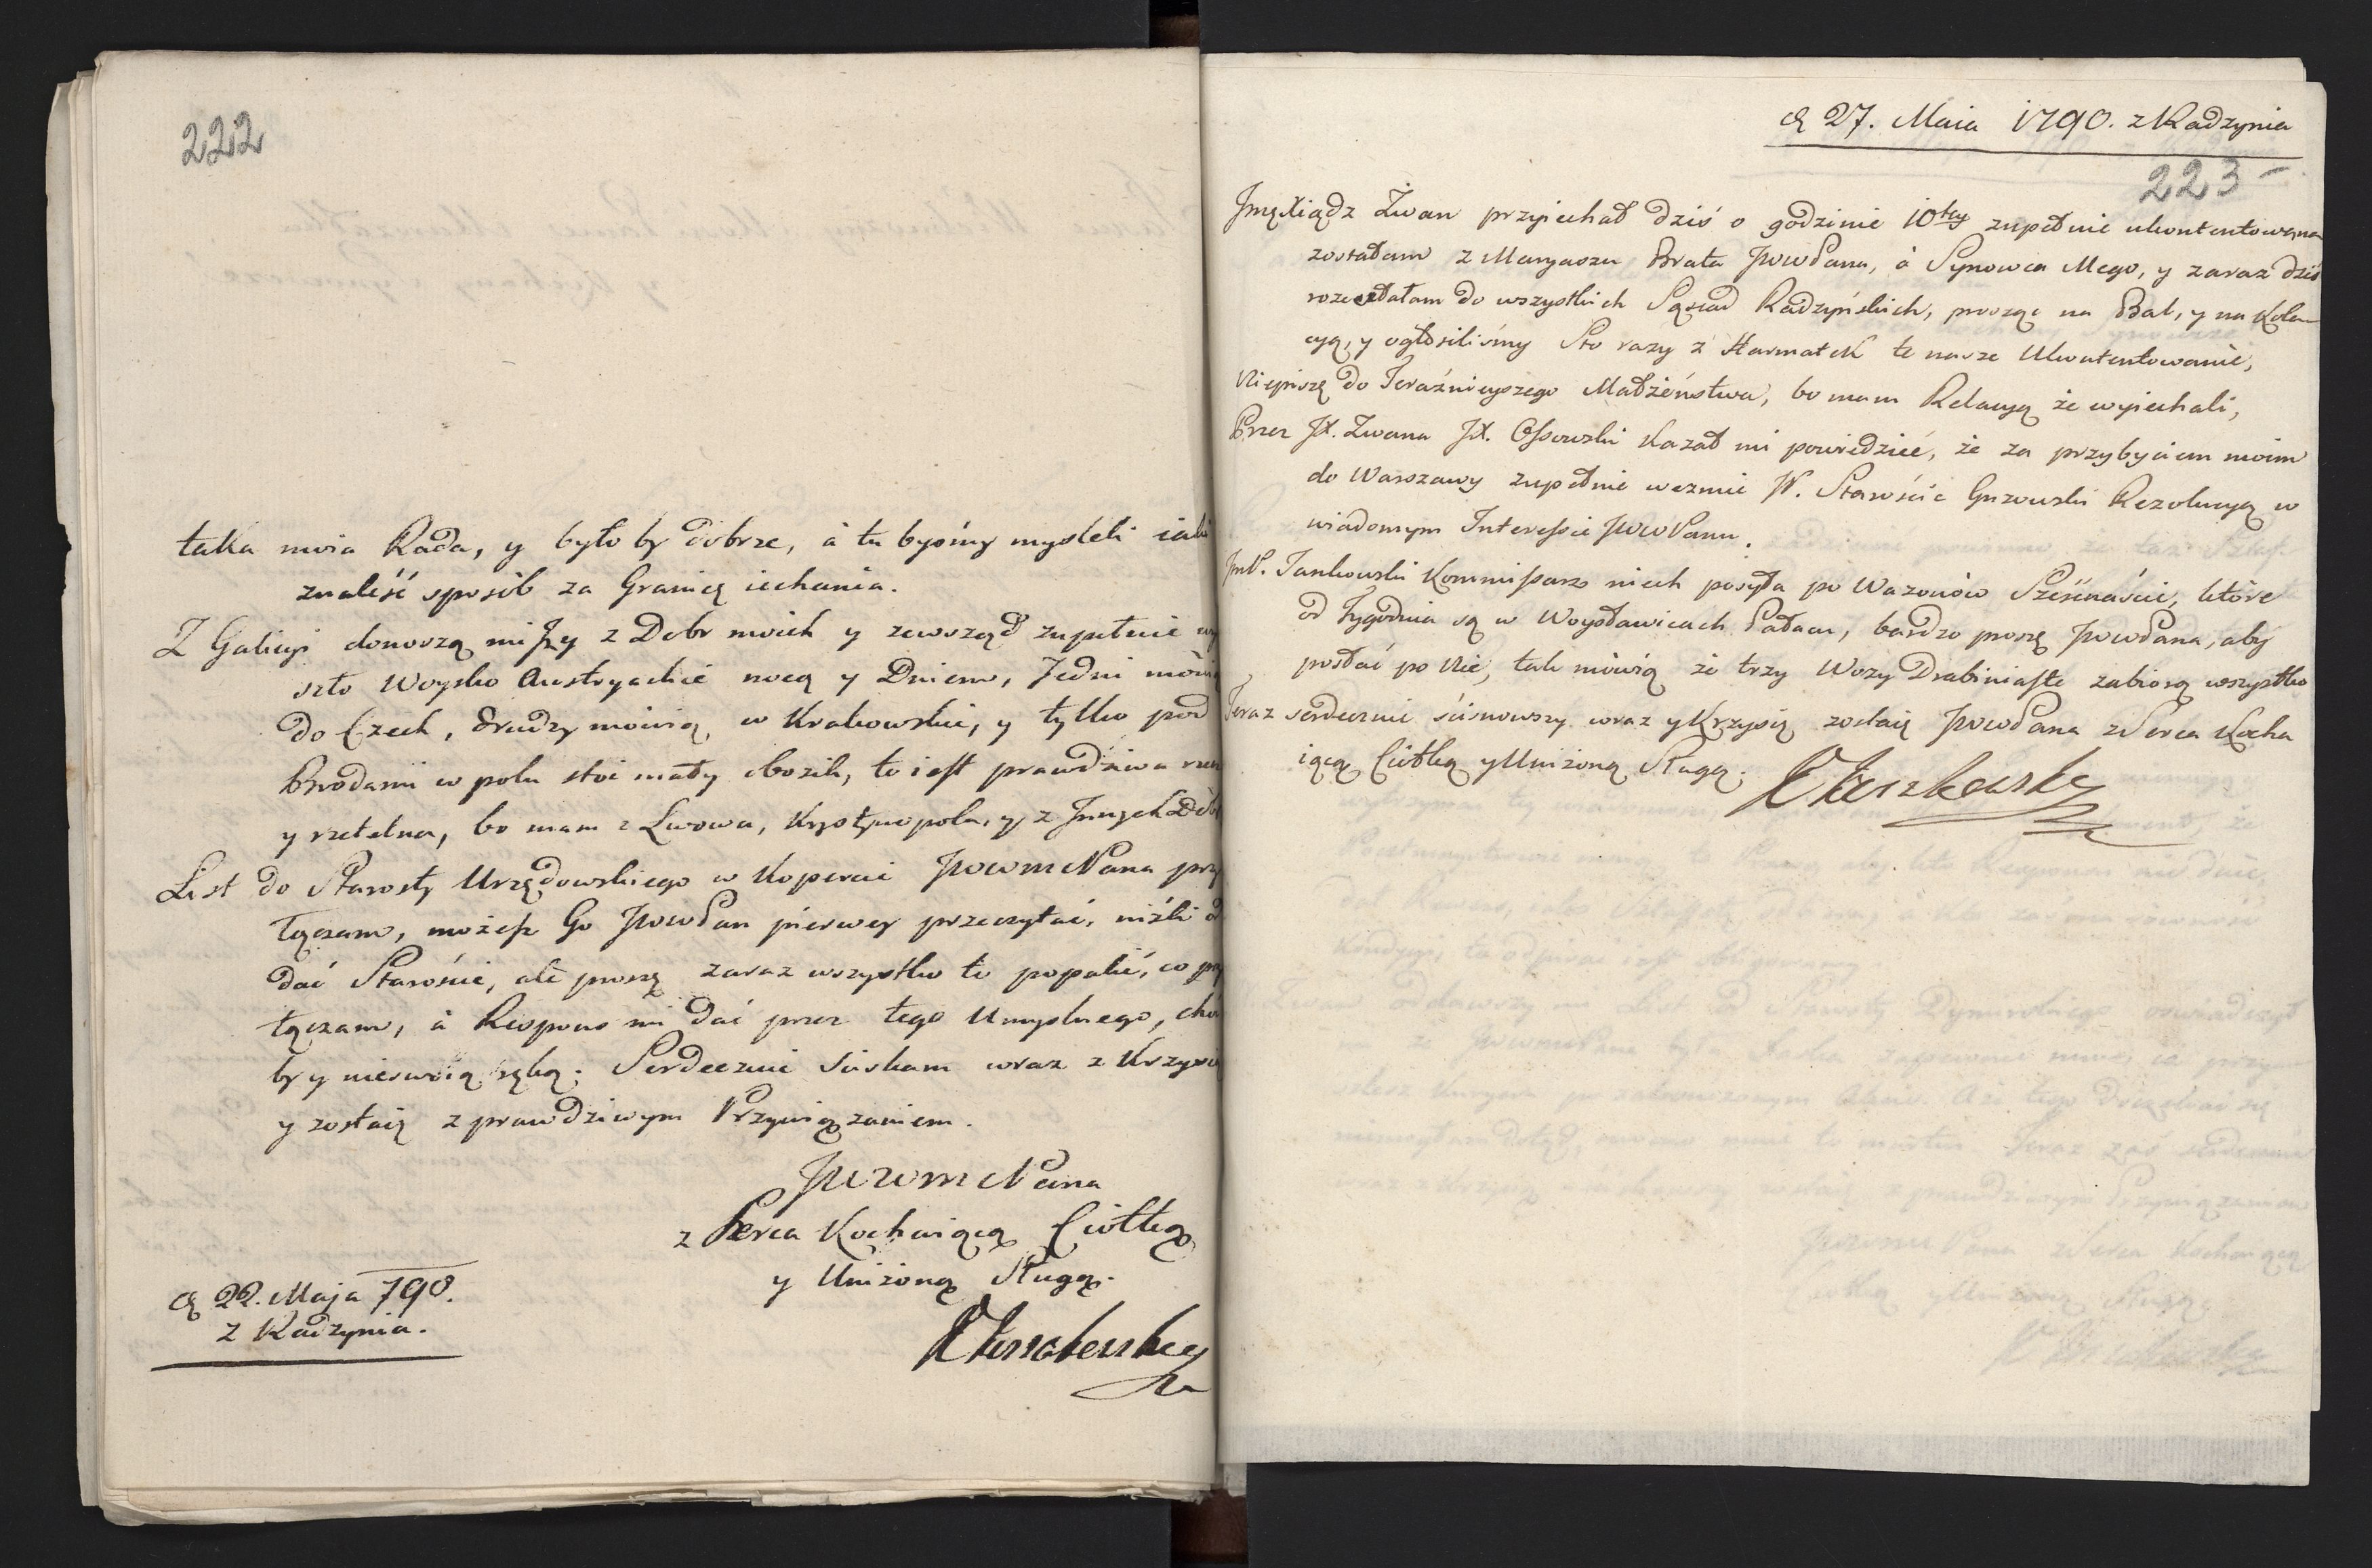 222
taka moia Rada, y było by dobrze, à tu byśmy mysleli iaki
znaleść sposób za Granicę iechania.
Z Galicyi donoszą mi y z Dobr moich y zewsząd zupełnie
szło Woysko Austryackie nocą y Dniem, Jedni mówią
do Czech, drudzy mówią, w Krakowskie, y tylko pod
Brodami w polu stoi mały obozik, to iest prawdziwa
y rzetelna, bo mam z Lwowa, Krystynopola, y z Innych Dobr
List do Starosty Urzędowskiego w Kopercie JWWMPana przy
łączam, możesz Go JWWPan pierwey przeczytać, niźli od
dać Starośćie, ale proszę zaraz wszystko to popalić, co przy
łączam, à Respons mi dać przez tego Umyslnego, choć
by y nieswoią ręką. Serdecznie sciskam wraz z Krzysią
y zostaię z prawdziwym Przywiązaniem.
JWWMPana
z Serca Kochaiącą Ciotką
y Uniżoną Sługą.
d 22. Maja 790.
z Radzynia.
d 27. Maia 1790. z Radzynia
223
Jmę Xiądz Zwan przyiechał dziś o godzinie 10tey zupełnie ukontentowana
zostałam z Maryaszu Brata JWWPana, à Synowca Mego, y zaraz dziś
rozesłałam do wszystkich Sąsiad Radzyńskich, prosząc na Bal, y na Kola-
cyą, y ogłosiliśmy Sto razy z Harmatek te nasze Ukontentowanie,
Niepiszę do Teraźnieyszego Małżeństwa, bo mam Relacyą że wyiechali,
Przez JX. Zwana JX. Ossowski kazał mi powiedzieć, że za przybyciem moim
do Warszawy zupełnie wezmie W. Starośćic Guzowski Rezolucyą w
wiadomym Interessie JWWPanu.
JmP. Jankowski Kommissarz niech posyła po Wazonów Sześćnaście, które
od Tygodnia są w Woysławicach Pałacu, bardzo proszę JWWPana, aby
posłać po nie, tak mówią że trzy Wozy Drabiniaste zabiorą wszystko
Teraz serdecznie ścisnowszy wraz y Krzysią zostaię JWWPana z Serca Kocha
iącą Ciotką y Uniżoną Sługą.